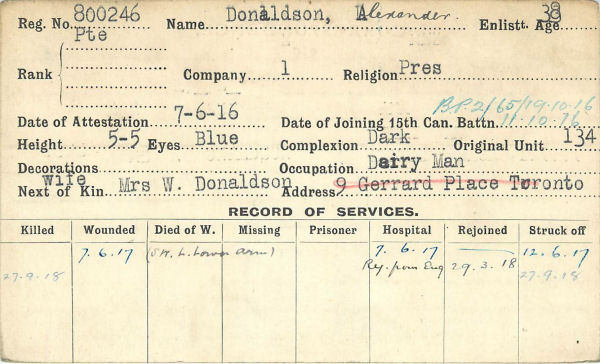 Reg. No. 800246 Name Donaldson, Alexander. Enlistt. Age 38
Pte
Rank Company 1 Religion Pres
B.P.2/65/19.10.16
Date of Attestation 7-6-16 Date of Joining 15th Can. Battn. 11.10.16
Height 5-5 Eyes Blue Complexion Dark Original Unit 134
Decorations Occupation Dairy Man
Wife
Next of Kin Mrs W. Donaldson Address 9 Gerrard Place Toronto
RECORD OF SERVICES.
Killed Wounded Died of W. Missing Prisoner Hospital Rejoined Struck off
7.6.17 (SW. L. Lower Arm) 7.6.17 12.6.17
27-9-18 Rej. from Eng 29.3.18 27-9-18